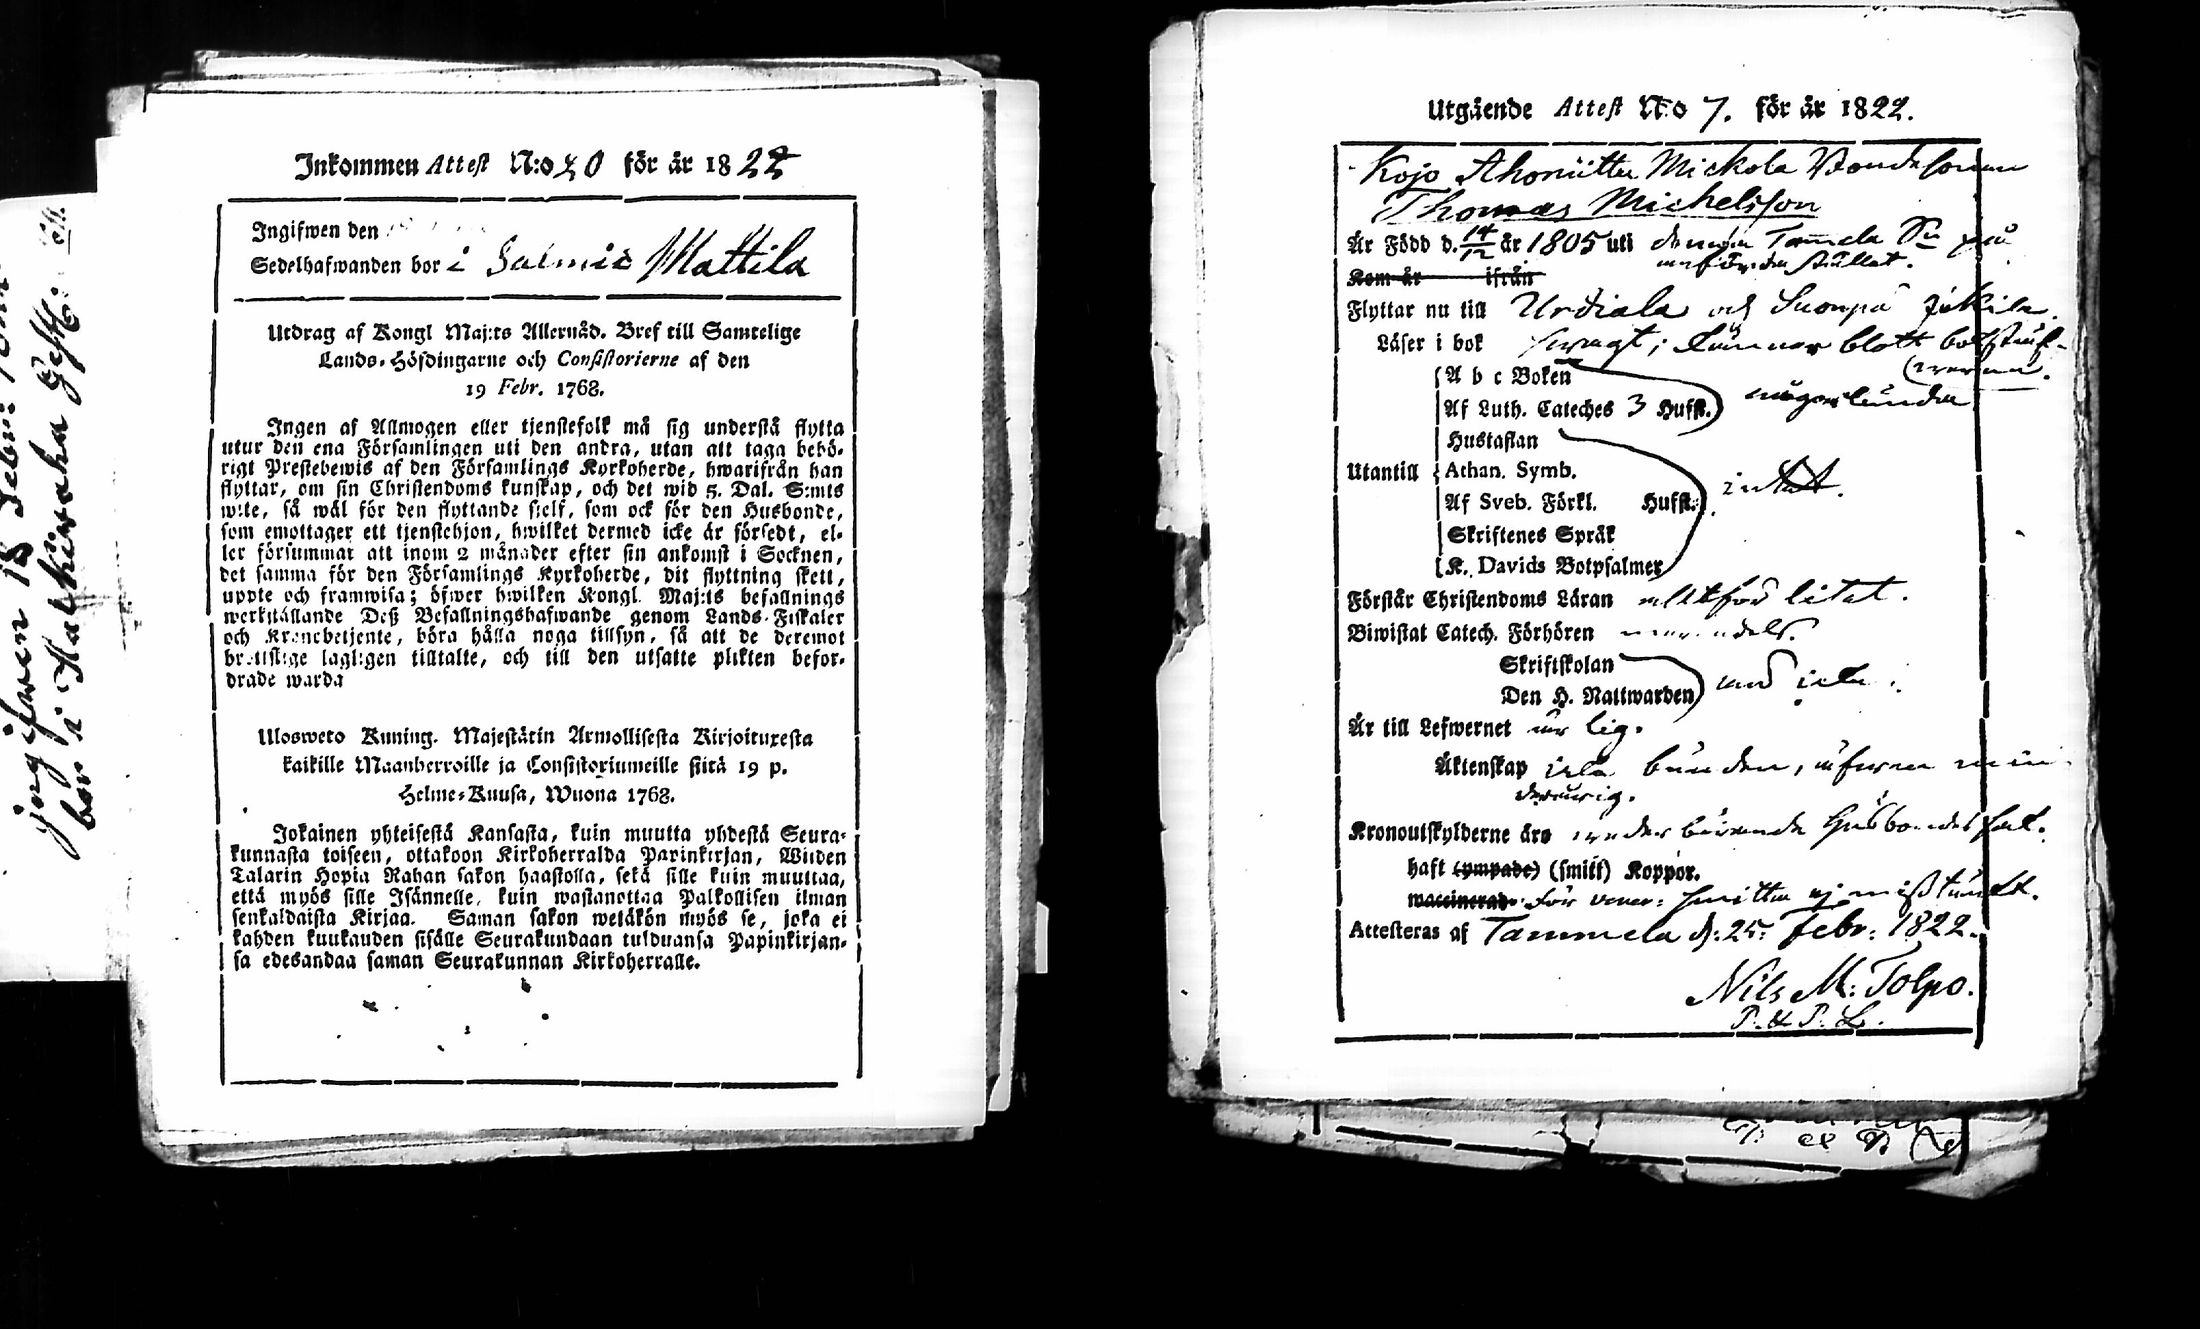 jngifwen 18 Febr:
bor i Halkiwaha Gesth:
Inkommen Attest N:o 20 för år 1822
Ingifwen den
Sedelhafwanden bor i Salmis Mattila
Utdrag af Kongl Maj:ts Allernåd. Bref till Samtelige
Lands-Höfdingarne och Consistorierne af den
19 Febr. 1768.
Ingen af Allmogen eller tjenstefolk må sig understå flytta
utur den ena Församlingen uti den andra, utan att taga behö-
rigt Prestebewis af den Församlings Kyrkoherde, hwarifrån han
flyttar, om sin Christendoms kunskap, och det wid 5. Dal. S:mts
wite, så wäl för den flyttande sielf, som ock för den Husbonde,
som emottager ett tjenstehjon, hwilket dermed icke är försedt, el-
ler försummat att inom 2 månader efter sin ankomst i Socknen,
det samma för den Församlings Kyrkoherde, dit flyttning skett,
uppte och framwisa; öfwer hwilken Kongl. Maj:ts befallnings
werkställande Deß Befallningshafwande genom Lands-Fiskaler
och Kronobetjente, böra hålla noga tillsyn, så att de deremot
brottslige lagligen tilltalte, och till den utsatte plikten befor-
drade warda
Ulosweto Kuning. Majestätin Armollisesta Kirjoituxesta
kaikille Maanherroille ja Consistoriumeille siitä 19 p.
Helme-Kuusa, Wuona 1768.
Jokainen yhteisestä Kansasta, kuin muutta yhdestä Seura-
kunnasta toiseen, ottakoon Kirkoherralda Papinkirjan, Wiiden
Talarin Hopia Rahan sakon haastolla, sekä sille kuin muuttaa,
että myös sille Isännelle, kuin wastanottaa Palkollisen ilman
senkaldaista Kirjaa. Saman sakon wetäkön myös se, joka ei
kahden kuukauden sisälle Seurakundaan tulduansa Papinkirjan-
sa edesandaa saman Seurakunnan Kirkoherralle.
Utgående Attest N:o 7. för år 1822.
Kojo Ahoniitty Mickola Bondesonen
Thomas Michelsson
Är Född d. 14/12 år 1805 uti denna Tammela Sn på
anförda stället.
Kom år ifrån
Flyttar nu till Urdiala och Suonpä Jikila.
Läser i bok swagt; känner blott bokstäf-
werna.
A b c Boken
Af Luth. Cateches 3 Hufst. någorlunda
Hustaflan
Utantill Athan. Symb.
Af Sveb. Förkl. Hufst. intet.
Skriftenes Språk
K. Davids Botpsalmer
Förstår Christendoms Läran alltför litet.
Biwistat Catech. Förhören
Skriftskolan
Den H. Nattwarden
Är till Lefwernet ärlig.
Äktenskap icke bunden, äfwen min-
derårig.
Kronoutskylderne äro under
haft (ympade) (smitt) Koppor.
vaccinerad. för vener: smitta ej mißtänkt.
Attesteras af Tammela d: 25 Febr: 1822.
Nils M: Tolpo.
P. & P. L.